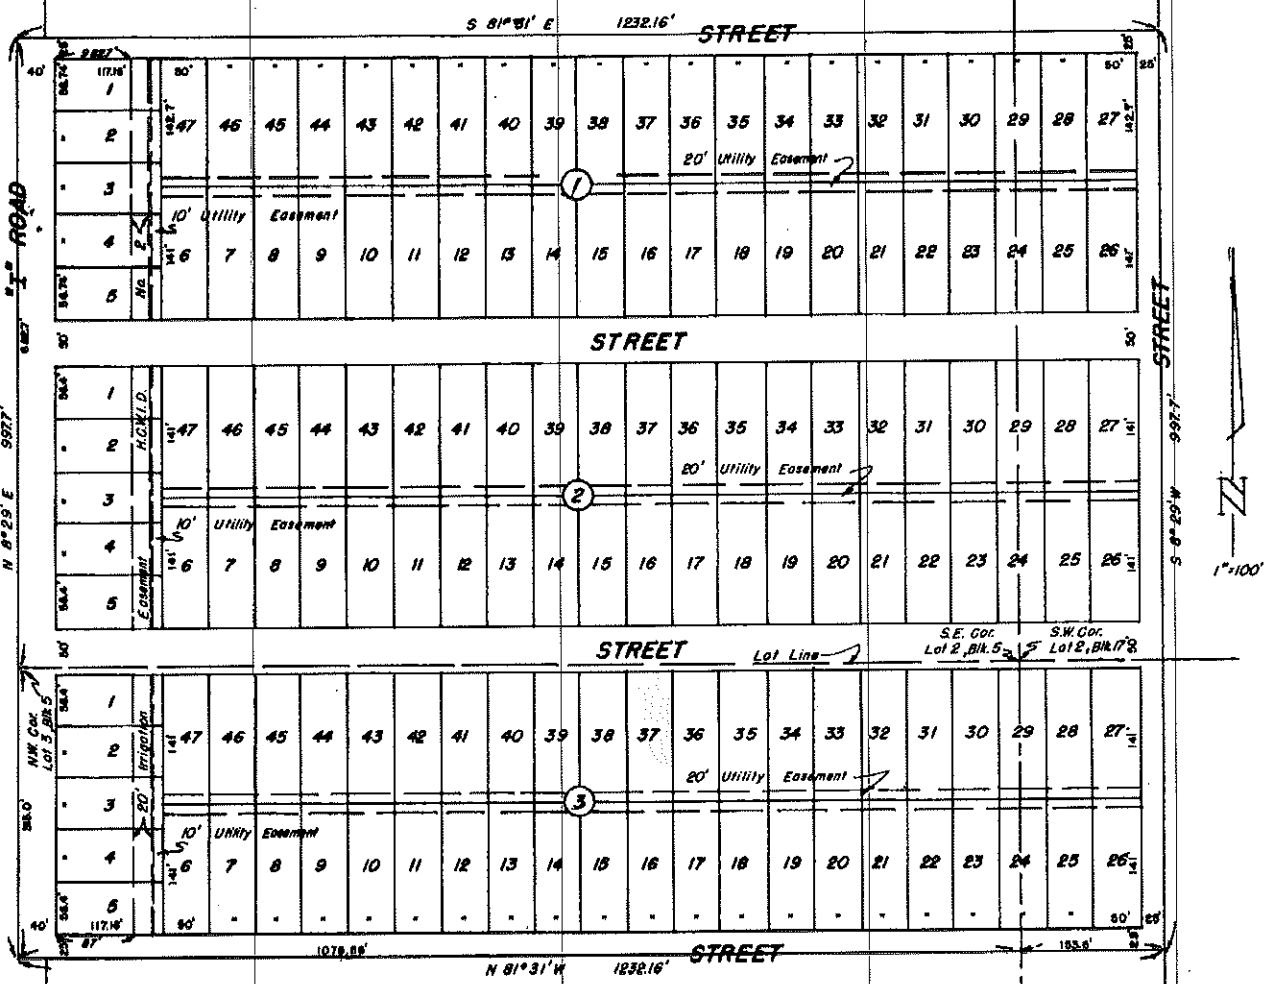 S 81°31' E 1232.16' STREET
40' 25' 50' 25' 25'
117.16'
1
2
3
4
5
142.7' 47 46 45 44 43 42 41 40 39 38 37 36 35 34 33 32 31 30 29 28 27 142.7'
20' Utility Easement
1
10' Utility Easement
141' 6 7 8 9 10 11 12 13 14 15 16 17 18 19 20 21 22 23 24 25 26 141'
56.74'
"I" ROAD
No. 2
50' STREET 50'
STREET
56.4'
1
2
3
4
5
H.C.W.I.D.
141' 47 46 45 44 43 42 41 40 39 38 37 36 35 34 33 32 31 30 29 28 27 141'
20' Utility Easement
2
10' Utility Easement
141' 6 7 8 9 10 11 12 13 14 15 16 17 18 19 20 21 22 23 24 25 26 141'
56.4'
Easement
N 8°29' E 997.7'
S 8°29' W 997.7'
N
1"=100'
50' STREET Lot Line 50'
S.E. Cor.
Lot 2, Blk. 5
S.W. Cor.
Lot 2, Blk. 17
N.W. Cor.
Lot 3, Blk 5
56.4'
1
2
3
4
5
20' Irrigation
141' 47 46 45 44 43 42 41 40 39 38 37 36 35 34 33 32 31 30 29 28 27 141'
20' Utility Easement
3
10' Utility Easement
141' 6 7 8 9 10 11 12 13 14 15 16 17 18 19 20 21 22 23 24 25 26 141'
56.4'
40' 117.16' 50' " " " " 50' 25'
25' STREET 25'
N 81°31' W 1232.16'